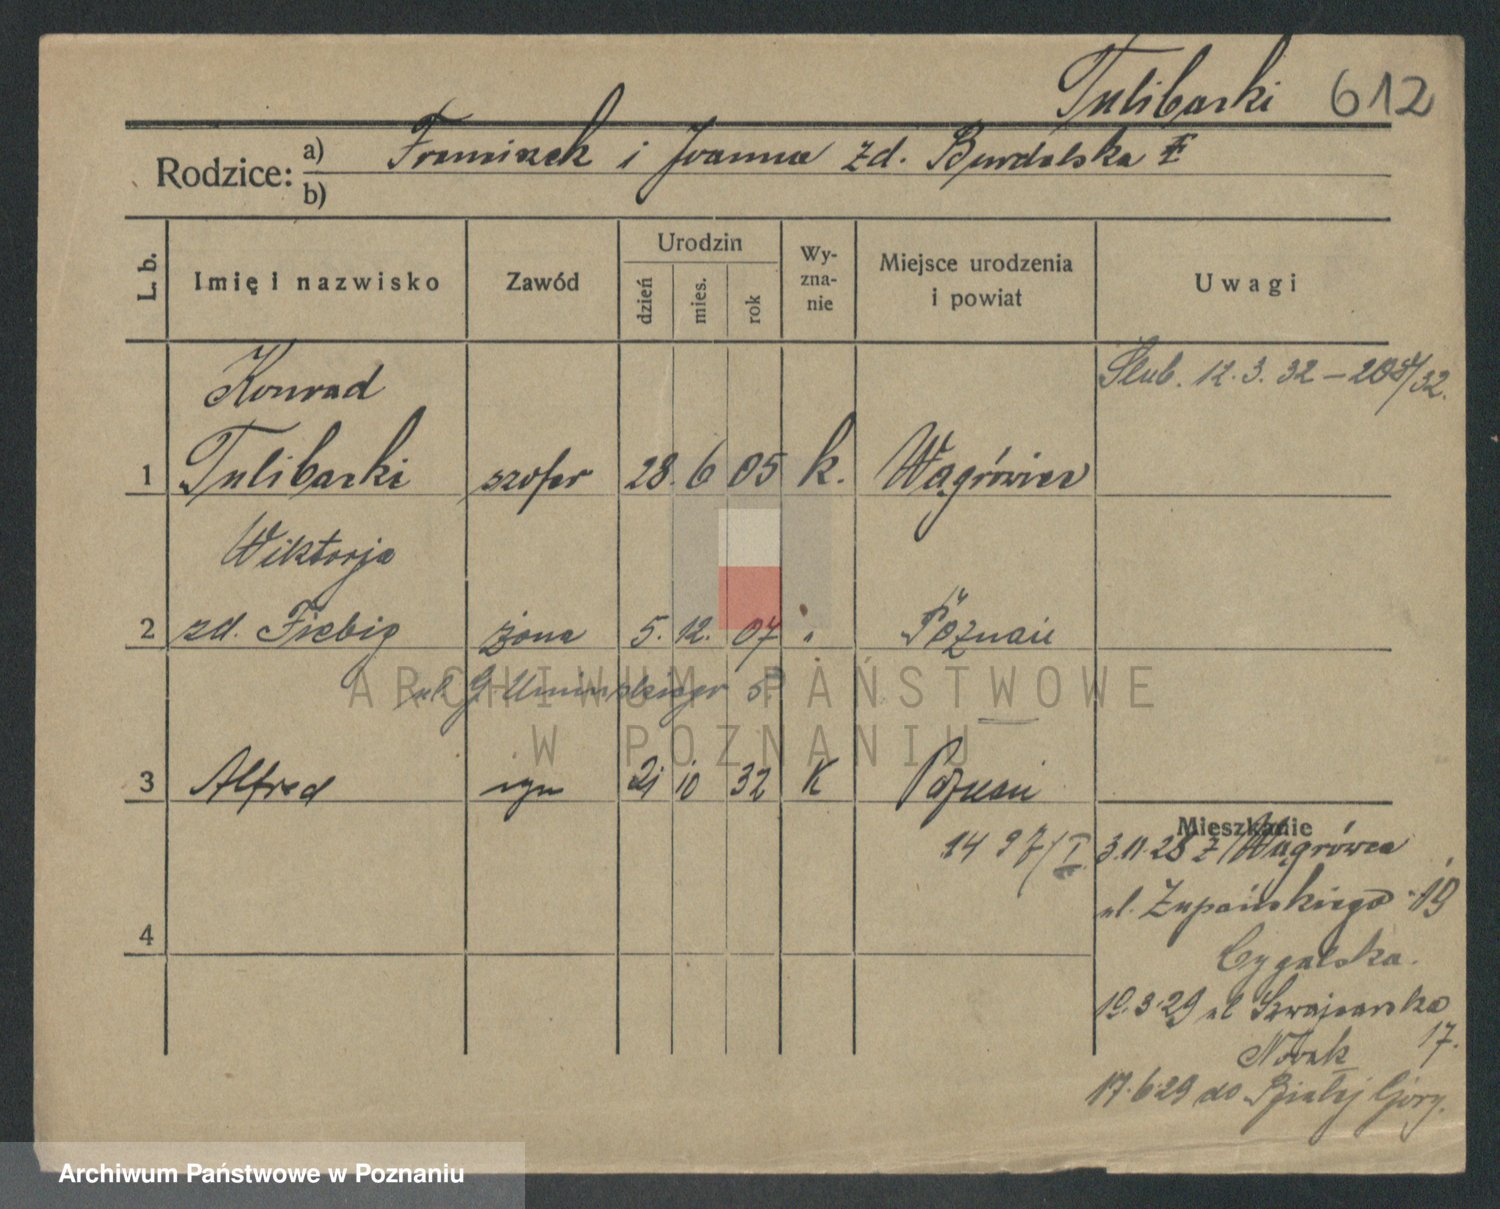 Tulibaski 612
Rodzice: a) Franciszek i Joanna zd. Burdalska
b)
L. b. Imię i nazwisko Zawód Urodzin dzień mies. rok Wy-zna-nie Miejsce urodzenia i powiat Uwagi
Ślub. 12.3.32 –
Konrad
1 Tulibaski szofer 28. 6 05 k. Wągrówiec
Wiktorja
2 zd. Fiebig żona 5. 12. 07 " Poznań
ul. G. Umińskiego 5.
3 Alfred syn 21 10 32 K Poznań
Mieszkanie
14 97/I 3.11.28 z Wągrówca
ul. Żupańskiego 19
4
Cygalska.
19.3.29 ul Szwajcarska
Nowak 17.
17.6.29 do Białej Góry.
ARCHIWUM PAŃSTWOWE
W POZNANIU
Archiwum Państwowe w Poznaniu